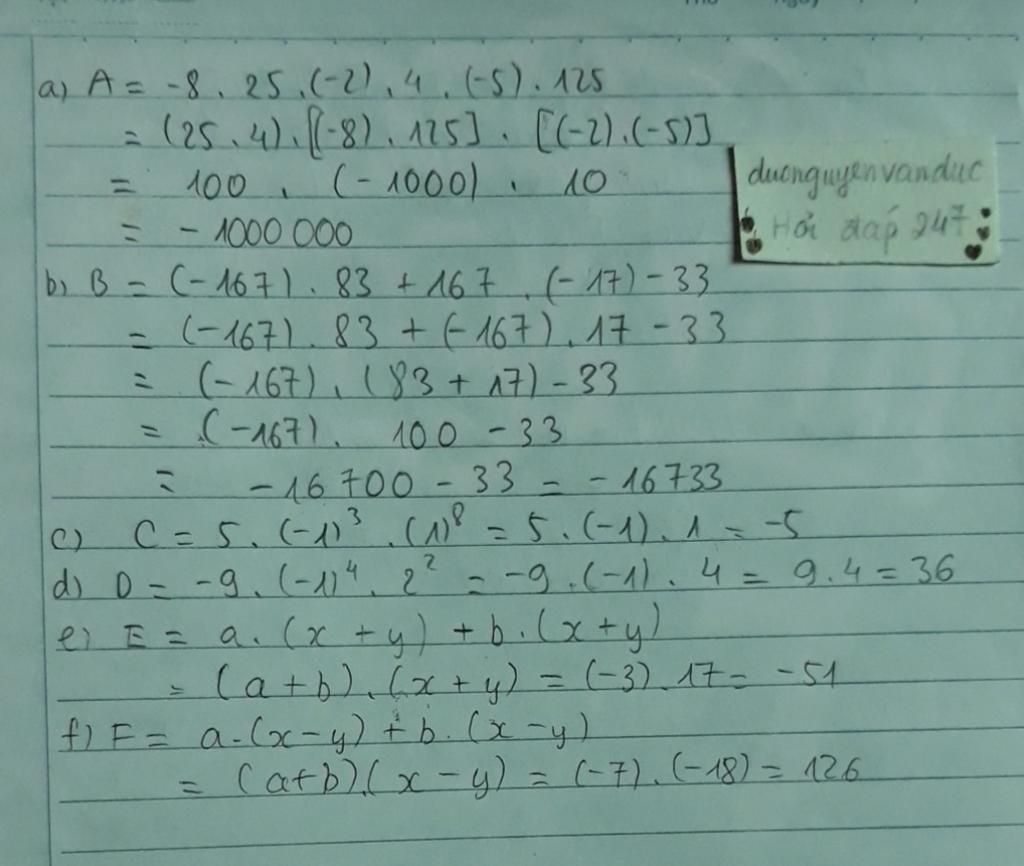 a) A = -8 . 25 . (-2) . 4 . (-5) . 125
= (25 . 4) . [(-8) . 125] . [(-2) . (-5)]
= 100 . (-1000) . 10
= - 1000 000
b) B = (-167) . 83 + 167 . (-17) - 33
= (-167) . 83 + (-167) . 17 - 33
= (-167) . (83 + 17) - 33
= (-167) . 100 - 33
= -16 700 - 33 = - 16733
c) C = 5 . (-1)³ . (1)⁸ = 5 . (-1) . 1 = -5
d) D = -9 . (-1)⁴ . 2² = -9 . (-1) . 4 = 9 . 4 = 36
e) E = a . (x + y) + b . (x + y)
= (a + b) . (x + y) = (-3) . 17 = -51
f) F = a . (x - y) + b . (x - y)
= (a + b) . (x - y) = (-7) . (-18) = 126
ducnguyenvanduc
Hỏi đáp 247